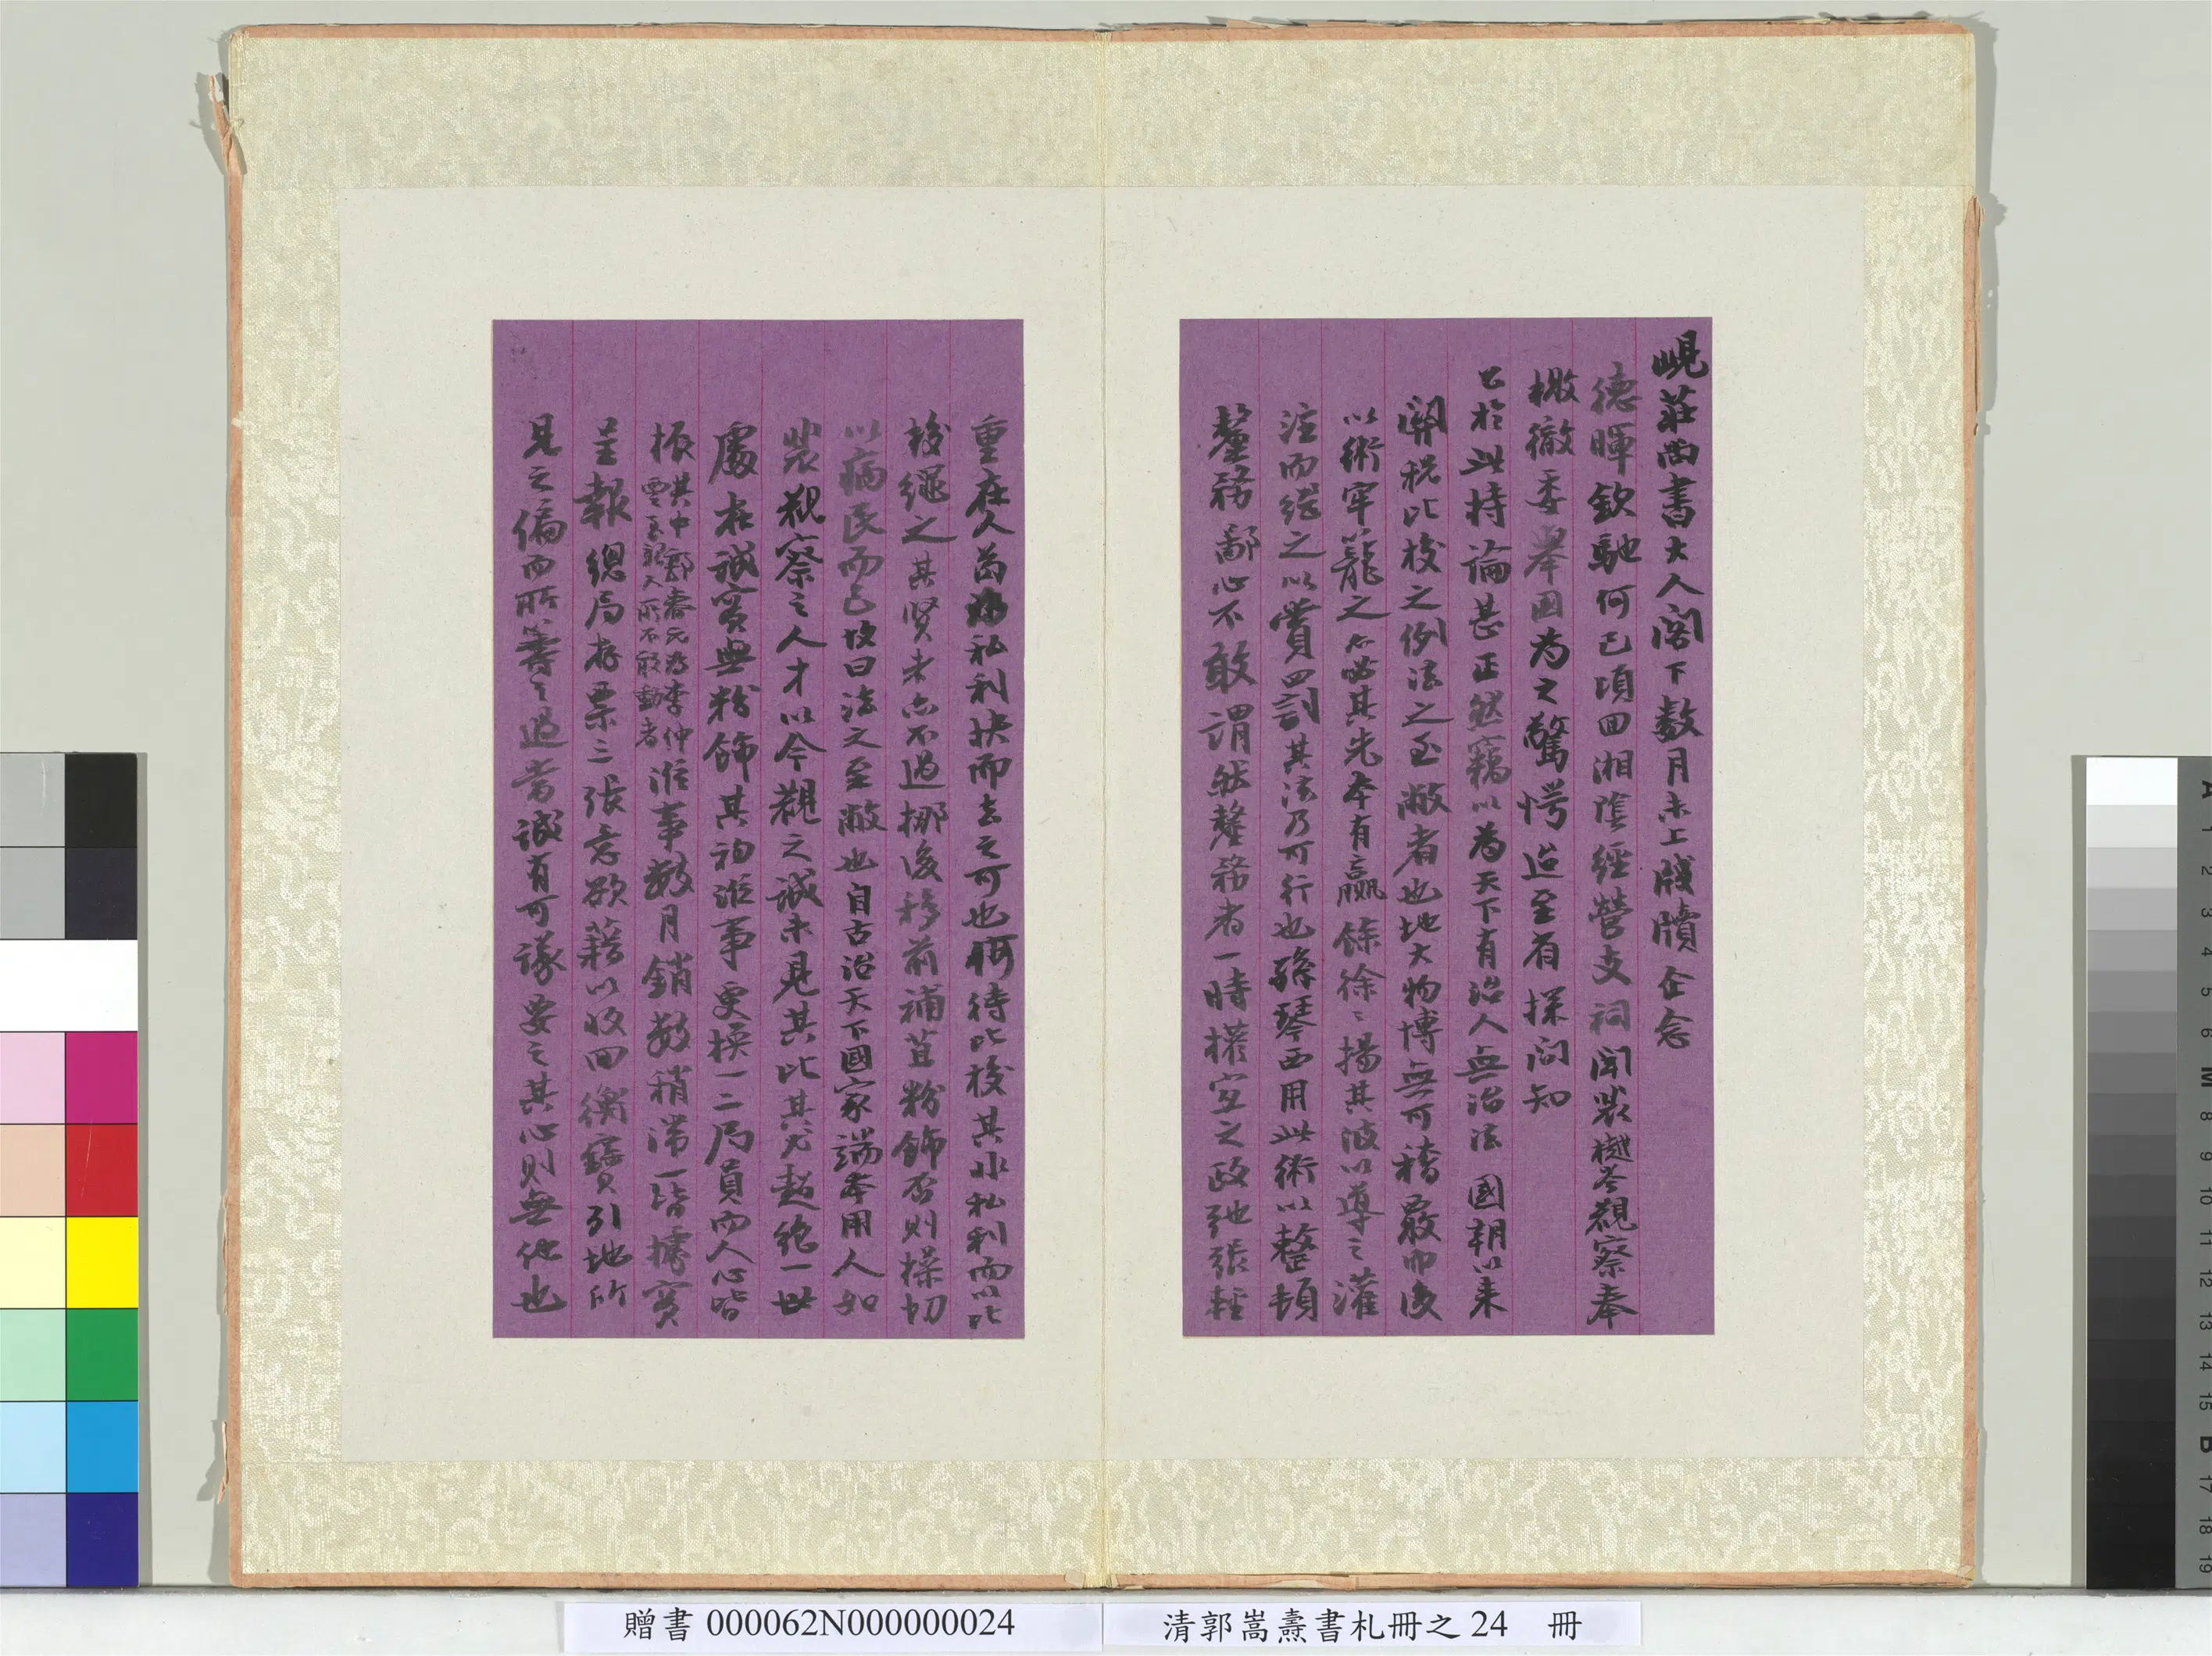 峴莊尚書大人閣下數月未上牋牘企念
德暉欽馳何已頃回湘陰經營支祠聞裴樾岑觀察奉
檄徹委舉國為之驚愕迨至省採問知
公於此持論甚正然竊以為天下有治人無治法 國朝以來
關稅比校之例法之至敝者也地大物博無可稽覈而後
以術牢籠之亦必其先本有贏餘徐徐揚其波以導之灌
注而繼之以賞罰其法乃可行也孫琴西用此術以整頓
釐務鄙心不敢謂然釐務者一時權宜之政弛張輕
重在人苟為私利抉而去之可也何待比校其非私利而以比
校繩之其賢者亦不過挪後移前補苴粉飾否則操切
以病民而已故曰法之至敝也自古治天下國家端本用人如
裴觀察之人才以今觀之誠未見其比其尤超絕一世
處在誠實無粉飾其初淮事更換一二局員而人心皆
振其中鄭壽元為李仲雲至親人所不敢動者淮事數月銷數稍滯一皆據實
呈報總局存票三張意欲藉以收回衡寶引地所
見之偏而所籌之過當誠有可議要之其心則無他也
贈書 000062N000000024
清郭嵩燾書札冊之 24 冊